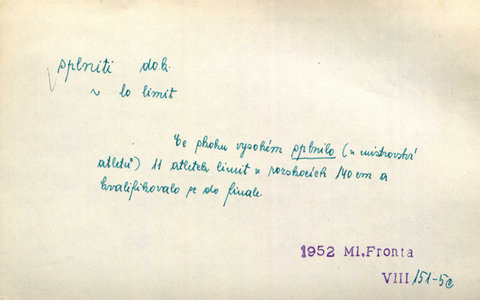 splniti dok.
~ to limit
Ve skoku vysokém splnilo (v mistrovství
atletů) 11 atletek limit v rozskocích 140 cm a
kvalifikovalo se do finale.
1952 Ml.Fronta
VIII/51-5a